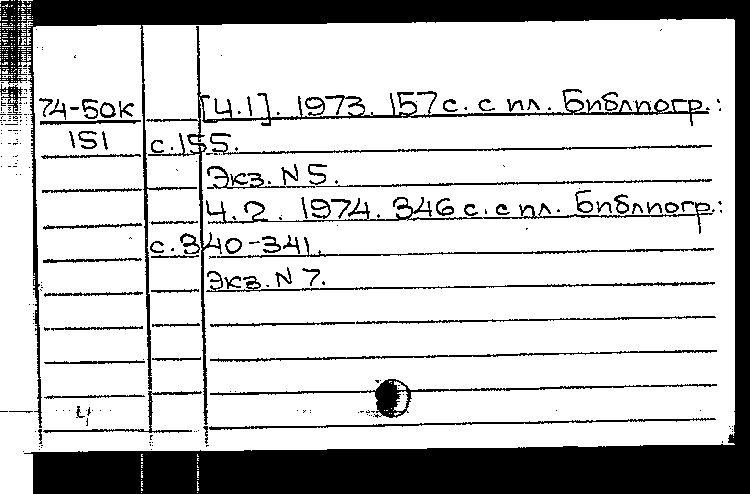 74-50к [Ч.1]. 1973. 157 с. с ил. Библиогр.:
151 с.155.
Экз. N 5.
Ч.2. 1974. 346 с. с ил. Библиогр.:
с.340-341.
Экз. N 7.
ч